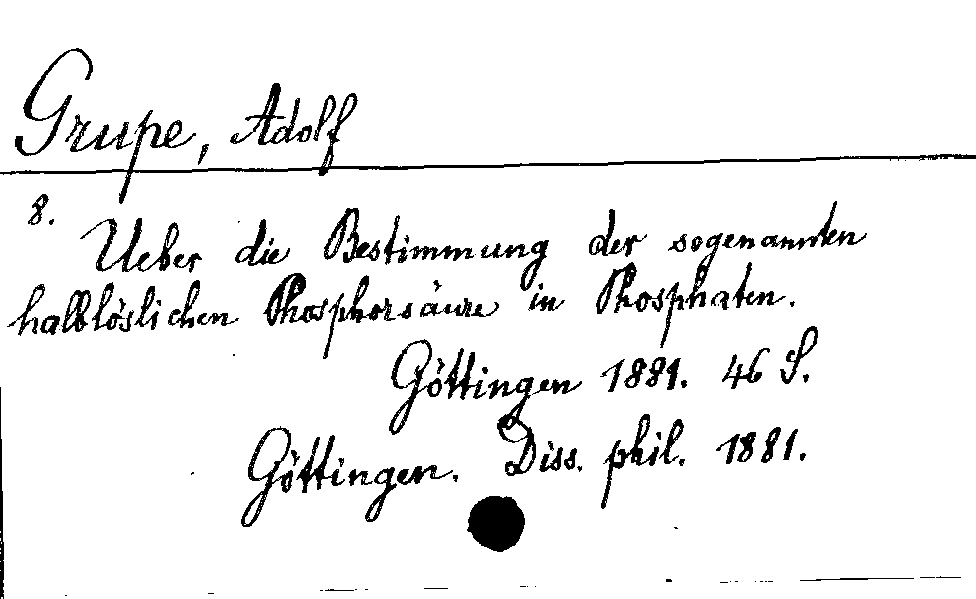 Grupe, Adolf
8.
Ueber die Bestimmung der sogenannten
halblöslichen Phosphorsäure in Phosphaten.
Göttingen 1881. 46 S.
Göttingen. Diss. phil. 1881.